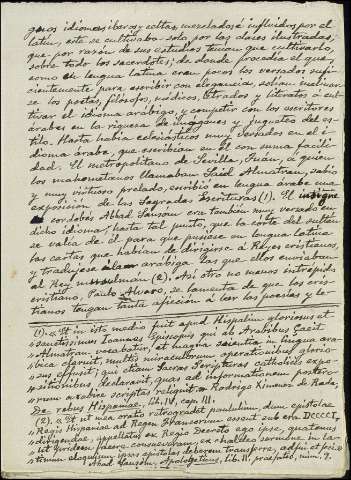 guos idiomas iberos y celtas, mezclados é influidos por el
latin, éste se cultivaba solo por las clases ilustradas,
que por razón de sus estudios tenian que cultivarlo,
sobre todo los sacerdotes; de donde procedia el que,
como en lengua latina eran pocos los versados sufi-
cientemente para escribir con elegancia, solian inclinar-
se los poetas, filósofos, médicos, letrados y literatos á cul-
tivar el idioma arábigo, y competir con los escritores
árabes en la riqueza de imágenes y jugueteo del es-
tilo. Hasta habia eclesiásticos muy versados en el i-
dioma árabe, que escribian en él con suma facili-
dad. El metropolitano de Sevilla, Juan, á quien
los mahometanos llamaban Said Almatran, sabio
y muy virtuoso prelado, escribió en lengua árabe una
exposición de las Sagradas Escrituras (1). El insigne
cordobés Abad Sansom era tambien muy versado en
dicho idioma, hasta tal punto, que la corte del sultán
se valia de él para que pusiese en lengua latina
las cartas que habian de dirigirse á Reyes cristianos,
y tradujese arábiga las que ellos enviaban
al Rey musulman (2). Asi otro no menos intrépido
cristiano, Paulo Alvaro, se lamenta de que los cris-
tianos tengan tanta afición á leer las poesias y le-
(1). «Et in isto medio fuit apud Hispalim gloriosus et
» sanctissimus Ioannes Episcopus qui ab Arabibus Caeit
» Almatran vocabatur, et magna scientia in lingua ara-
» bica claruit, multis miraculorum operationibus glorio-
» sus effulsit; qui etiam Sacras Scripturas catholicis expo-
» sitionibus declaravit, quas ad informationem postero-
» rum arabice scriptas reliquit.» Rodrigo Ximenez de Rada;
De rebus Hispaniae, lib. IV, cap. III.
(2). «Et ut mea oratio retrogradet paululum, dum epistolae
» Regis Hispaniae ad Regem Francorum essent sub era DCCCCI,
» dirigendae, appellatus ex Regis Decreto ego ipse, quatenus
» ut pridem facere consueveram, ex chaldaeo sermone in la-
» tinum eloquium ipsas epistolas deberem transferre, adfui et feci.»
Abad Sansom, Apologeticus, lib. II. praefatio, núm. 9.